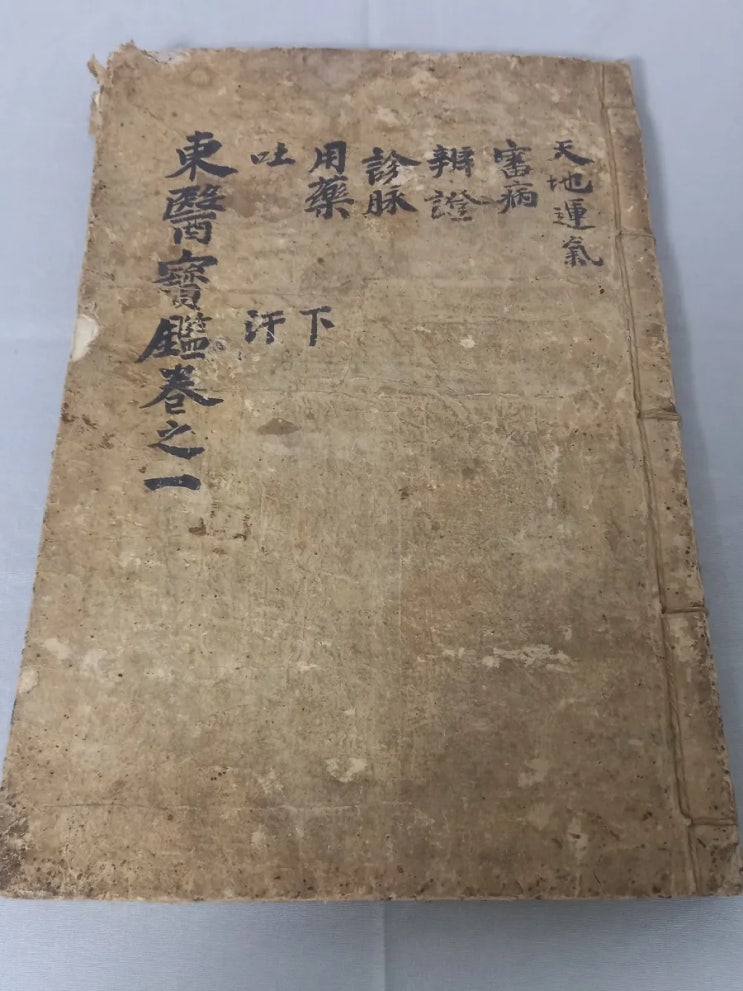 天地運氣
審病
辨證
診脉
用藥
下
吐
汗
東醫寳鑑卷之一